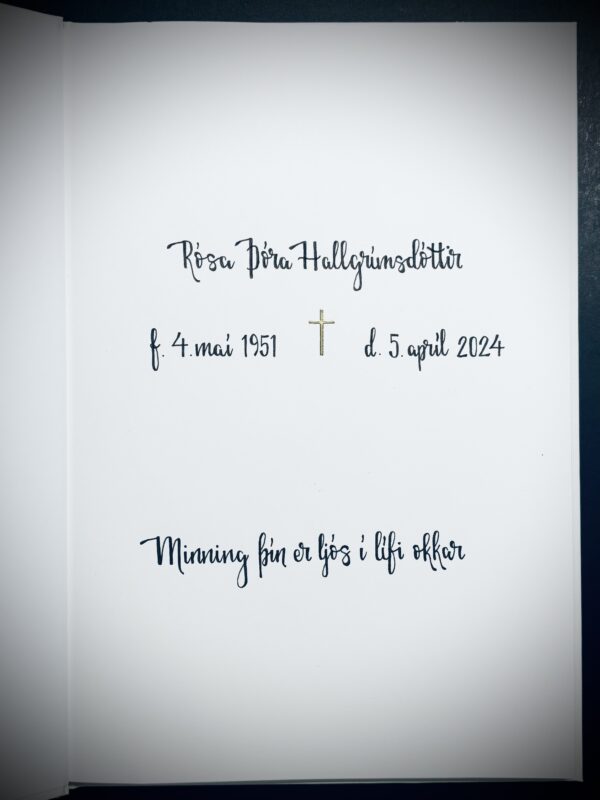 Rósa Þóra Hallgrímsdóttir
f. 4. maí 1951 d. 5. apríl 2024
Minning þín er ljós í lífi okkar